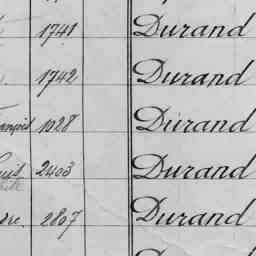 1741 Durand
1742 Durand
1028 Durand
2403 Durand
2807 Durand